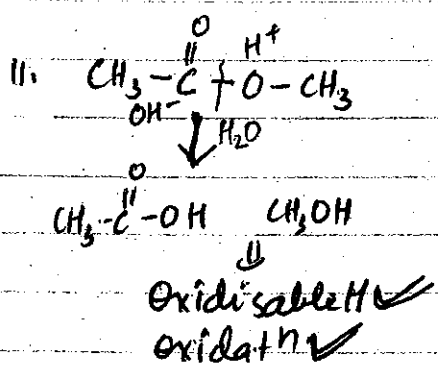 O H+
11. CH3-C-O-CH3
OH-
H2O
O
CH3-C-OH CH3OH
Oxidisable H
oxidatn